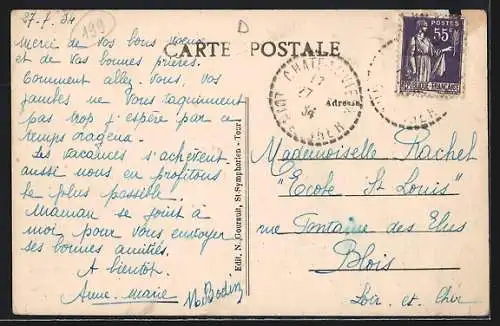 27-7. 34
199
D
CARTE POSTALE
Merci de vos bons voeux
et de vos bonnes prières.
Comment allez vous, vos
jambes ne vous taquinent
pas trop j'espère par ce
temps orageux.
Les vacances s'achèvent
aussi nous en profitons
le plus possible.
Maman se joint à
moi pour vous envoyer
ses bonnes amitiés.
A bientôt.
Anne-Marie M Bodin
Edit. N. Gourault, St-Symphorien - Tours
LOIR-&-CHER
17
27
34
Adresse
POSTES
55c
REPUBLIQUE FRANÇAISE
Mademoiselle Rachel
"Ecole St Louis"
rue Fontaine des Elus
Blois
Loir et Cher